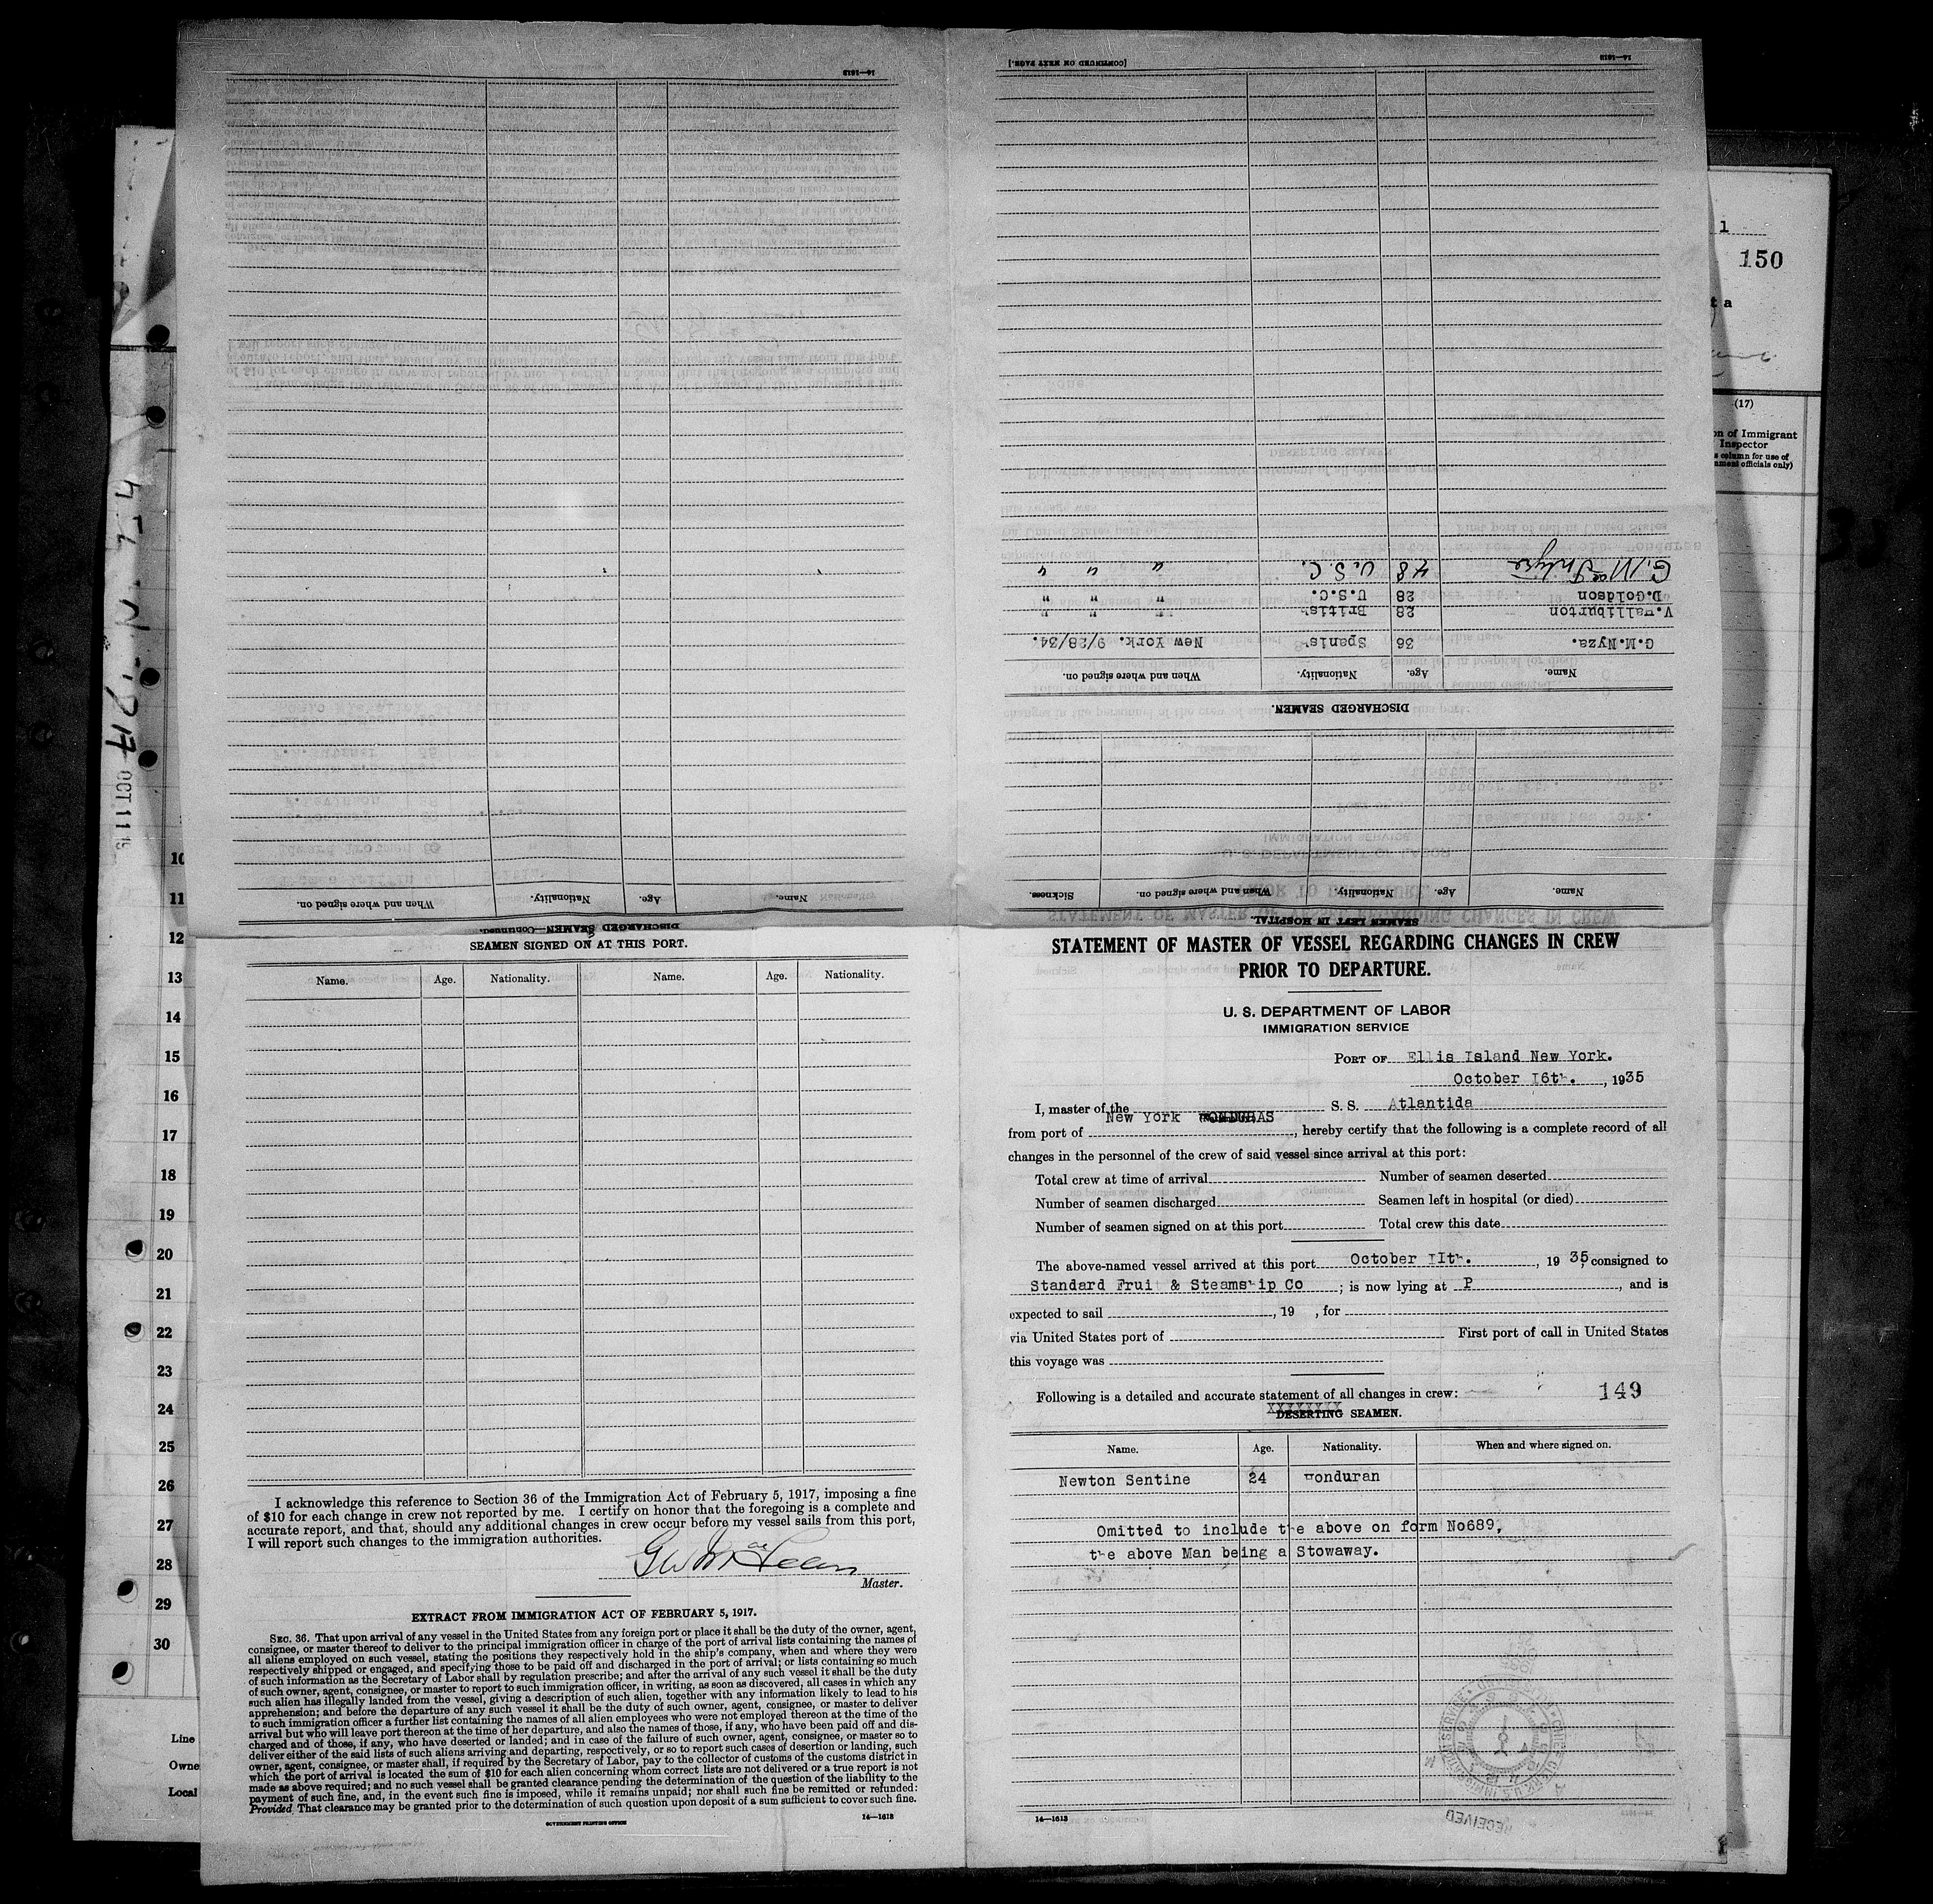 14—1613
[CONTINUED ON NEXT PAGE.]
14—1613
1
150
ta
(17)
on of Immigrant
Inspector
s column for use of
nment officials only)
OCT 11
10
11
12
13
14
15
16
17
18
19
20
21
22
23
24
25
26
27
28
29
30
Line
Owne
Local
DISCHARGED SEAMEN—Continued.
Name. Age. Nationality. When and where signed on.
SEAMEN LEFT IN HOSPITAL.
Name. Age. Nationality. When and where signed on. Sickness.
DISCHARGED SEAMEN.
Name. Age. Nationality. When and where signed on.
G.M.Nyza. 36 Spanis New York. 9/28/34.
V. alliburton 28 Britis " " "
D.Goldson 28 U.S.C. " " "
G. MacIntyre 48 U.S.C. " " "
SEAMEN SIGNED ON AT THIS PORT.
Name. Age. Nationality. Name. Age. Nationality.
I acknowledge this reference to Section 36 of the Immigration Act of February 5, 1917, imposing a fine
of $10 for each change in crew not reported by me. I certify on honor that the foregoing is a complete and
accurate report, and that, should any additional changes in crew occur before my vessel sails from this port,
I will report such changes to the immigration authorities.
Master.
EXTRACT FROM IMMIGRATION ACT OF FEBRUARY 5, 1917.
SEC. 36. That upon arrival of any vessel in the United States from any foreign port or place it shall be the duty of the owner, agent,
consignee, or master thereof to deliver to the principal immigration officer in charge of the port of arrival lists containing the names of
all aliens employed on such vessel, stating the positions they respectively hold in the ship's company, when and where they were
respectively shipped or engaged, and specifying those to be paid off and discharged in the port of arrival; or lists containing so much
of such information as the Secretary of Labor shall by regulation prescribe; and after the arrival of any such vessel it shall be the duty
of such owner, agent, consignee, or master to report to such immigration officer, in writing, as soon as discovered, all cases in which any
such alien has illegally landed from the vessel, giving a description of such alien, together with any information likely to lead to his
apprehension; and before the departure of any such vessel it shall be the duty of such owner, agent, consignee, or master to deliver
to such immigration officer a further list containing the names of all alien employees who were not employed thereon at the time of the
arrival but who will leave port thereon at the time of her departure, and also the names of those, if any, who have been paid off and dis-
charged and of those, if any, who have deserted or landed; and in case of the failure of such owner, agent, consignee, or master so to
deliver either of the said lists of such aliens arriving and departing, respectively, or so to report such cases of desertion or landing, such
owner, agent, consignee, or master shall, if required by the Secretary of Labor, pay to the collector of customs of the customs district in
which the port of arrival is located the sum of $10 for each alien concerning whom correct lists are not delivered or a true report is not
made as above required; and no such vessel shall be granted clearance pending the determination of the question of the liability to the
payment of such fine, and, in the event such fine is imposed, while it remains unpaid; nor shall such fine be remitted or refunded:
Provided, That clearance may be granted prior to the determination of such question upon deposit of a sum sufficient to cover such fine.
GOVERNMENT PRINTING OFFICE
14—1613
STATEMENT OF MASTER OF VESSEL REGARDING CHANGES IN CREW
PRIOR TO DEPARTURE.
U. S. DEPARTMENT OF LABOR
IMMIGRATION SERVICE
PORT OF Ellis Island New York.
October I6th. , 1935
I, master of the S. S. Atlantida
New York HONDURAS
from port of , hereby certify that the following is a complete record of all
changes in the personnel of the crew of said vessel since arrival at this port:
Total crew at time of arrival Number of seamen deserted
Number of seamen discharged Seamen left in hospital (or died)
Number of seamen signed on at this port Total crew this date
The above-named vessel arrived at this port October IIth. , 19 35, consigned to
Standard Frui & Steamship Co ; is now lying at P , and is
expected to sail , 19 , for
via United States port of First port of call in United States
this voyage was
Following is a detailed and accurate statement of all changes in crew:
149
XXXXXXXX
DESERTING SEAMEN.
Name. Age. Nationality. When and where signed on.
Newton Sentine 24 Honduran
Omitted to include the above on form No689,
the above Man being a Stowaway.
RECEIVED
14—1613